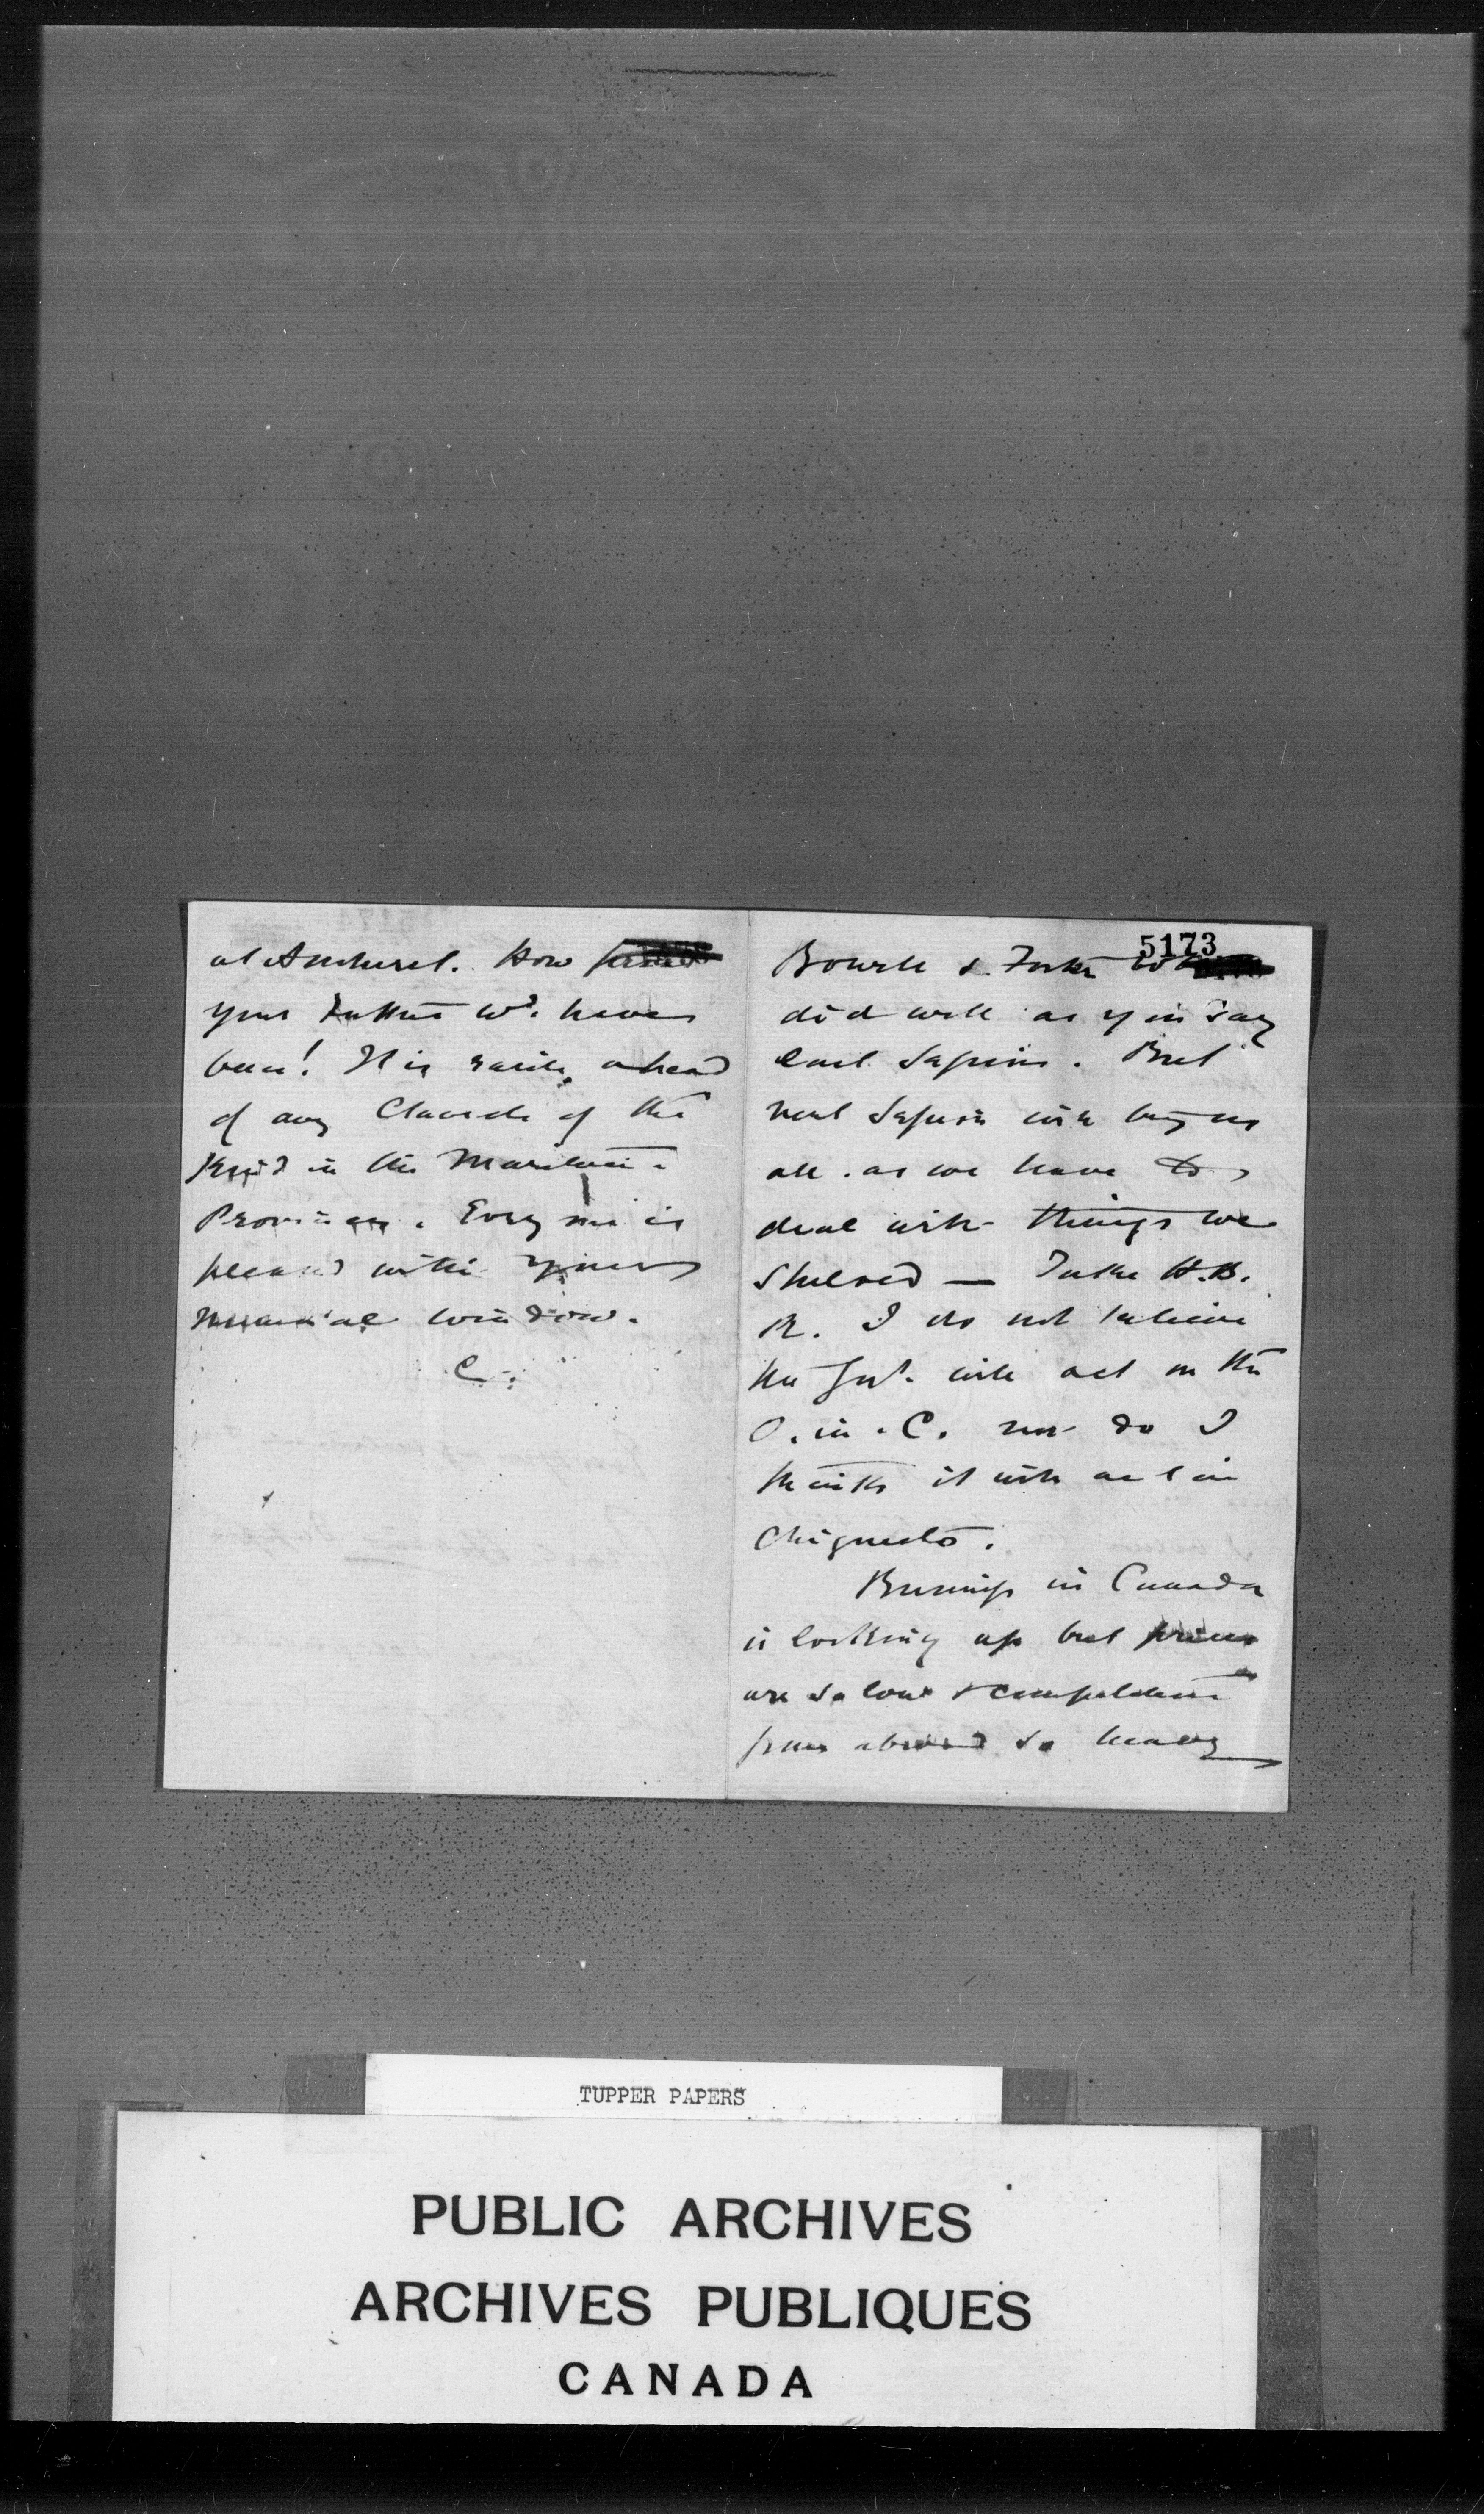 at Amherst. How
your Father wd. have
been! It is easily ahead
of any Church of the
kind in the Maritime
Provinces. Every one is
pleased with your
memorial window.
C.
5173
Bowell & Foster
did well as you say
last Session. But
next Session will try us
all. as we have to
deal with things we
shelved — Take H.B.
R. I do not believe
the Govt. will act on the
O. in. C. nor do I
think it will act in
Chignecto.
Business in Canada
is looking up but prices
are so low & competition
from abroad so heavy
TUPPER PAPERS
PUBLIC ARCHIVES
ARCHIVES PUBLIQUES
CANADA